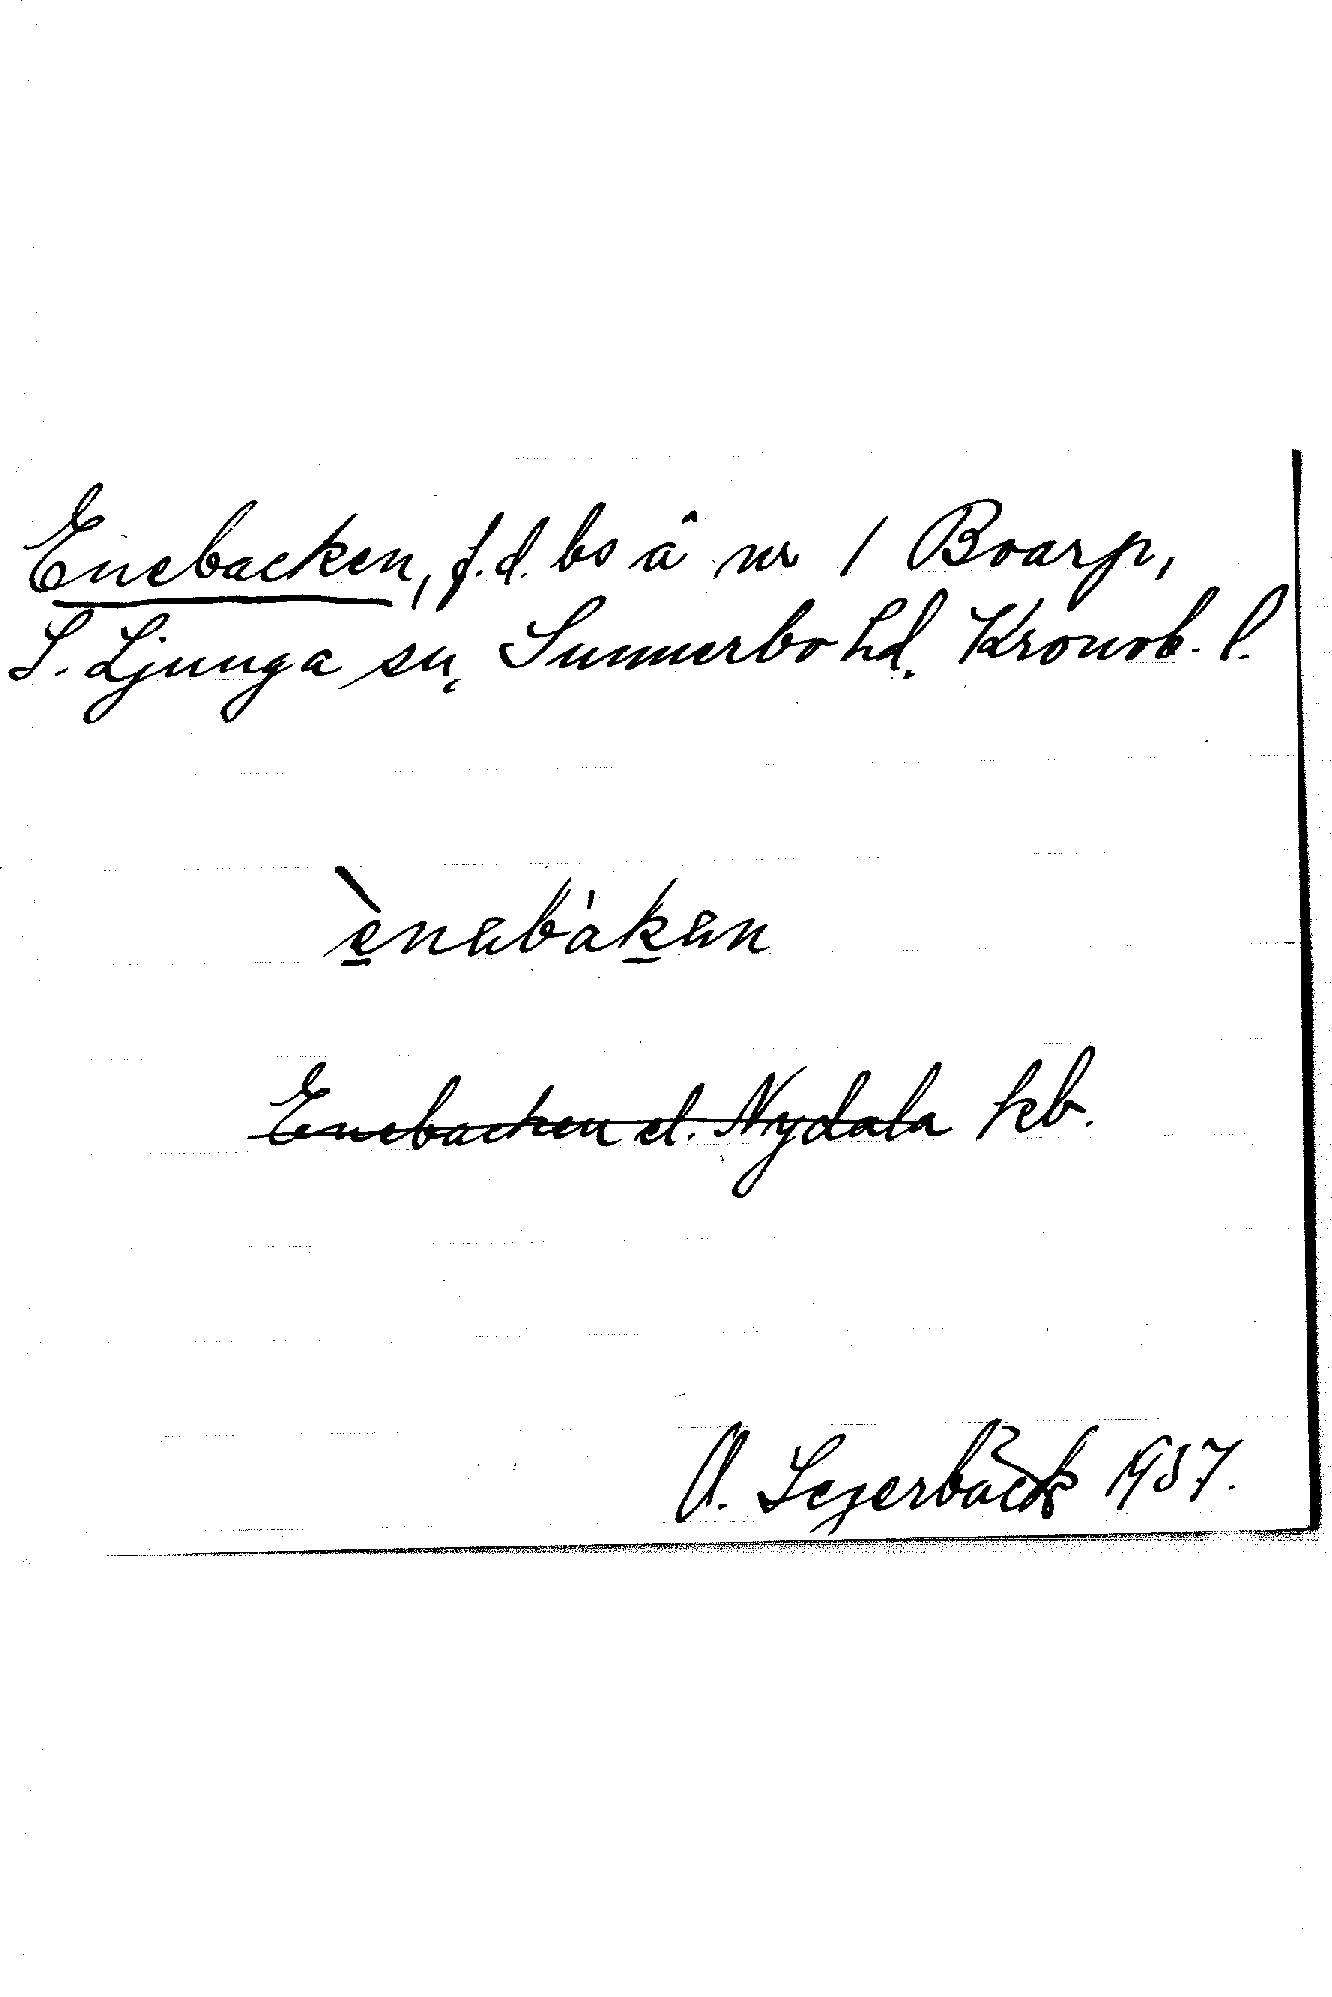 Enebacken, f.d. bs å nr 1 Boarp,
S. Ljunga sn, Sunnerbo hd. Kronob. l.
ènabàkan
Enebacken el. Nydala kb.
A. Segerbäck 1937.